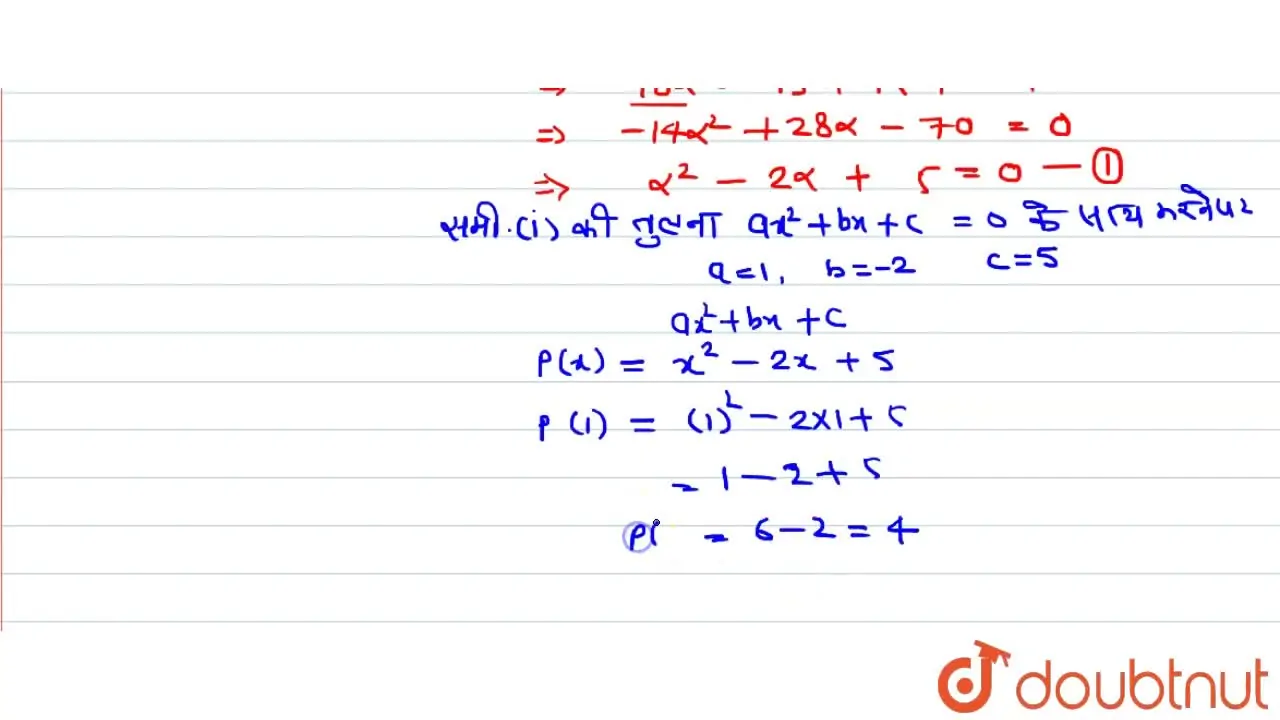 ⇒ -14α² + 28α - 70 = 0
⇒ α² - 2α + 5 = 0 — ①
समी.(i) की तुलना ax² + bx + c = 0 के साथ करने पर
a=1, b=-2 c=5
ax²+bx+c
P(x) = x² - 2x + 5
P(1) = (1)² - 2×1 + 5
= 1 - 2 + 5
P( = 6 - 2 = 4
doubtnut